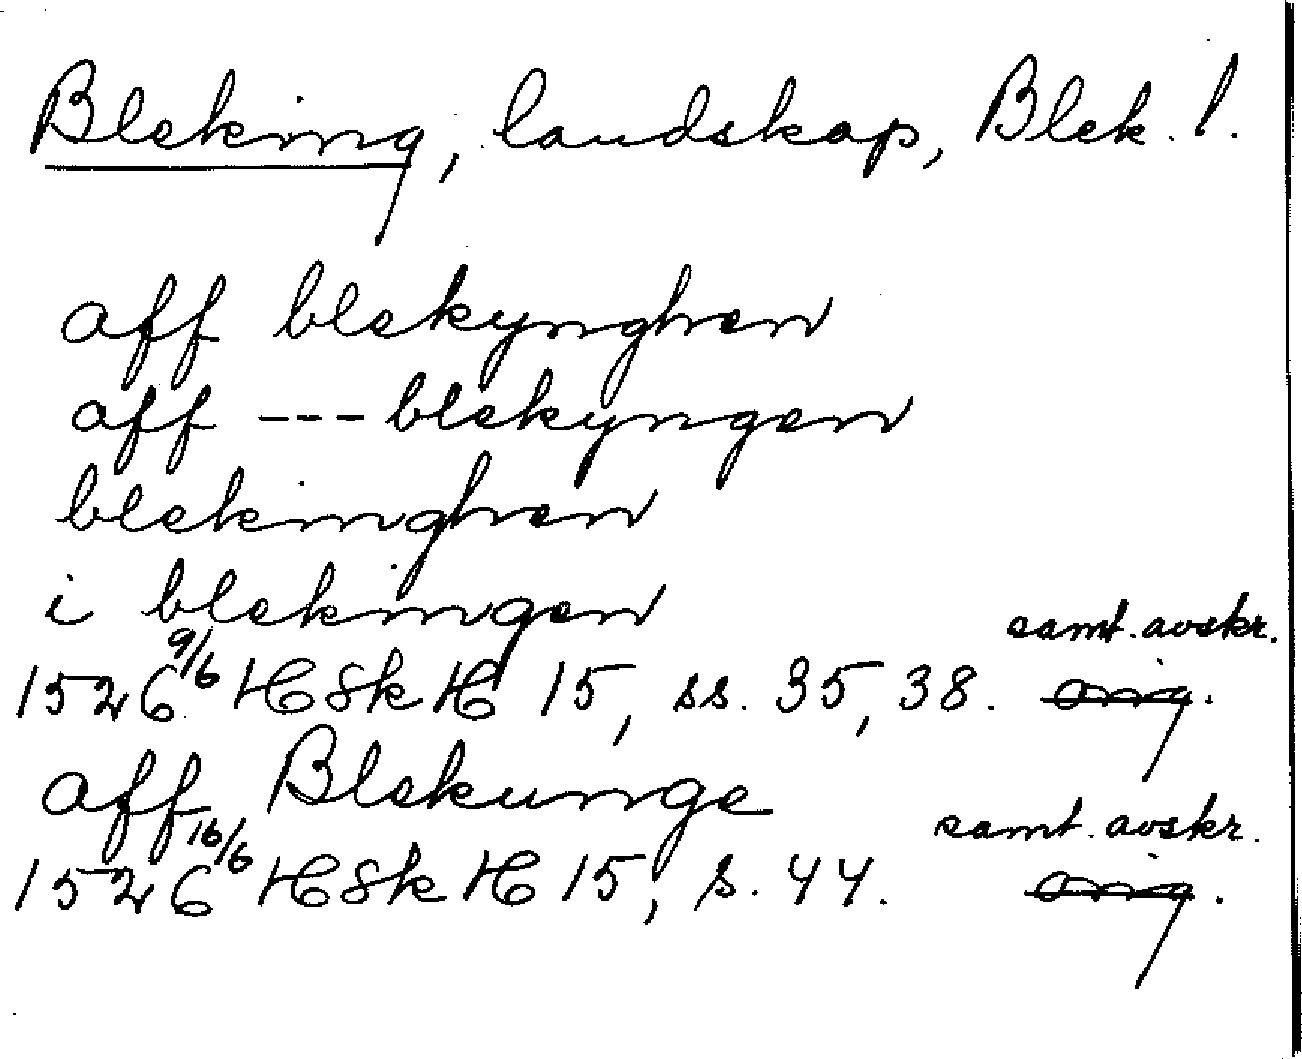 Bleking, landskap, Blek. l.
aff blekynghen
aff --- blekyngen
blekinghen
i blekingen
samt. avskr.
1526 9/6 HSkH 15, ss. 35, 38. orig.
aff Blekunge
samt. avskr.
1526 16/6 HSkH 15, s. 44. orig.